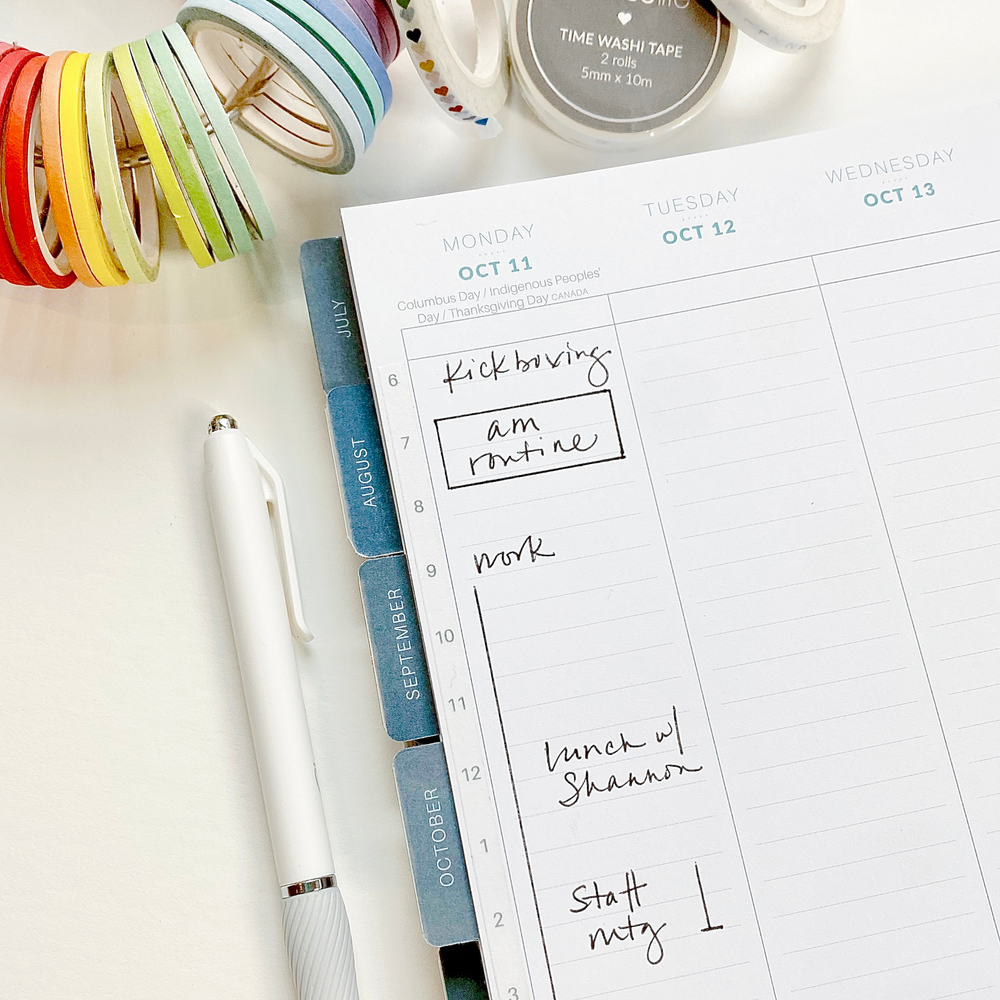 TIME WASHI TAPE
2 rolls
5mm x 10m
MONDAY
OCT 11
Columbus Day / Indigenous Peoples'
Day / Thanksgiving Day CANADA
TUESDAY
OCT 12
WEDNESDAY
OCT 13
JULY
AUGUST
SEPTEMBER
OCTOBER
6
Kickboxing
7
am
routine
8
9
work
10
11
12
Lunch w/
Shannon
1
2
Staff
mtg
3